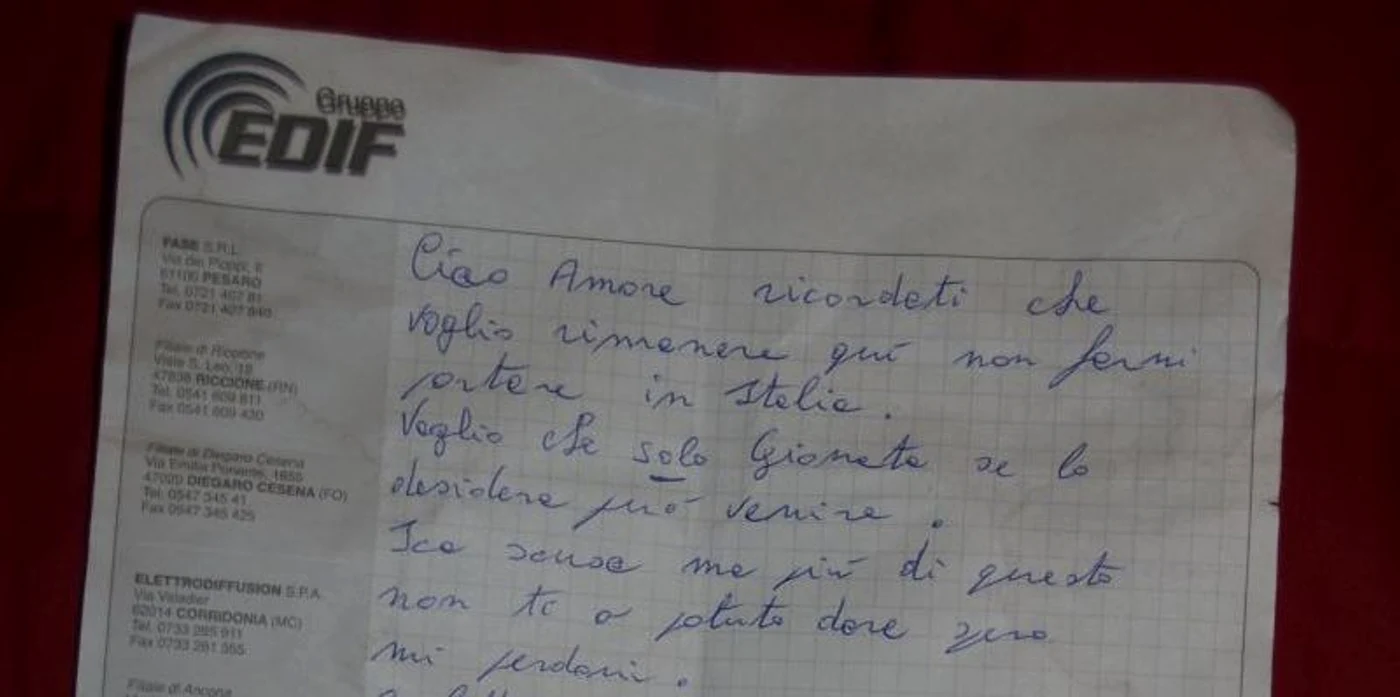 Gruppo
EDIF
FASE S.R.L.
Via dei Pioppi, 6
61100 PESARO
Tel. 0721 407 81
Fax 0721 407
Filiale di Riccione
Viale S. Leo, 18
47838 RICCIONE (RN)
Tel. 0541 609 611
Fax 0541 609 430
Filiale di Diegaro Cesena
Via Emilia Ponente,
47020 DIEGARO CESENA (FO)
Tel. 0547 345 41
Fax 0547 345 425
ELETTRODIFFUSION S.P.A.
Via Valadier
62014 CORRIDONIA (MC)
Tel. 0733 285 911
Fax 0733 281 355
Filiale di Ancona
Ciao Amore ricordati che
voglio rimanere qui non farmi
portare in Italia.
Voglio che solo Gionata se lo
desidera può venire.
Ica scusa ma più di questo
non te o potuto dare spero
mi perdoni.